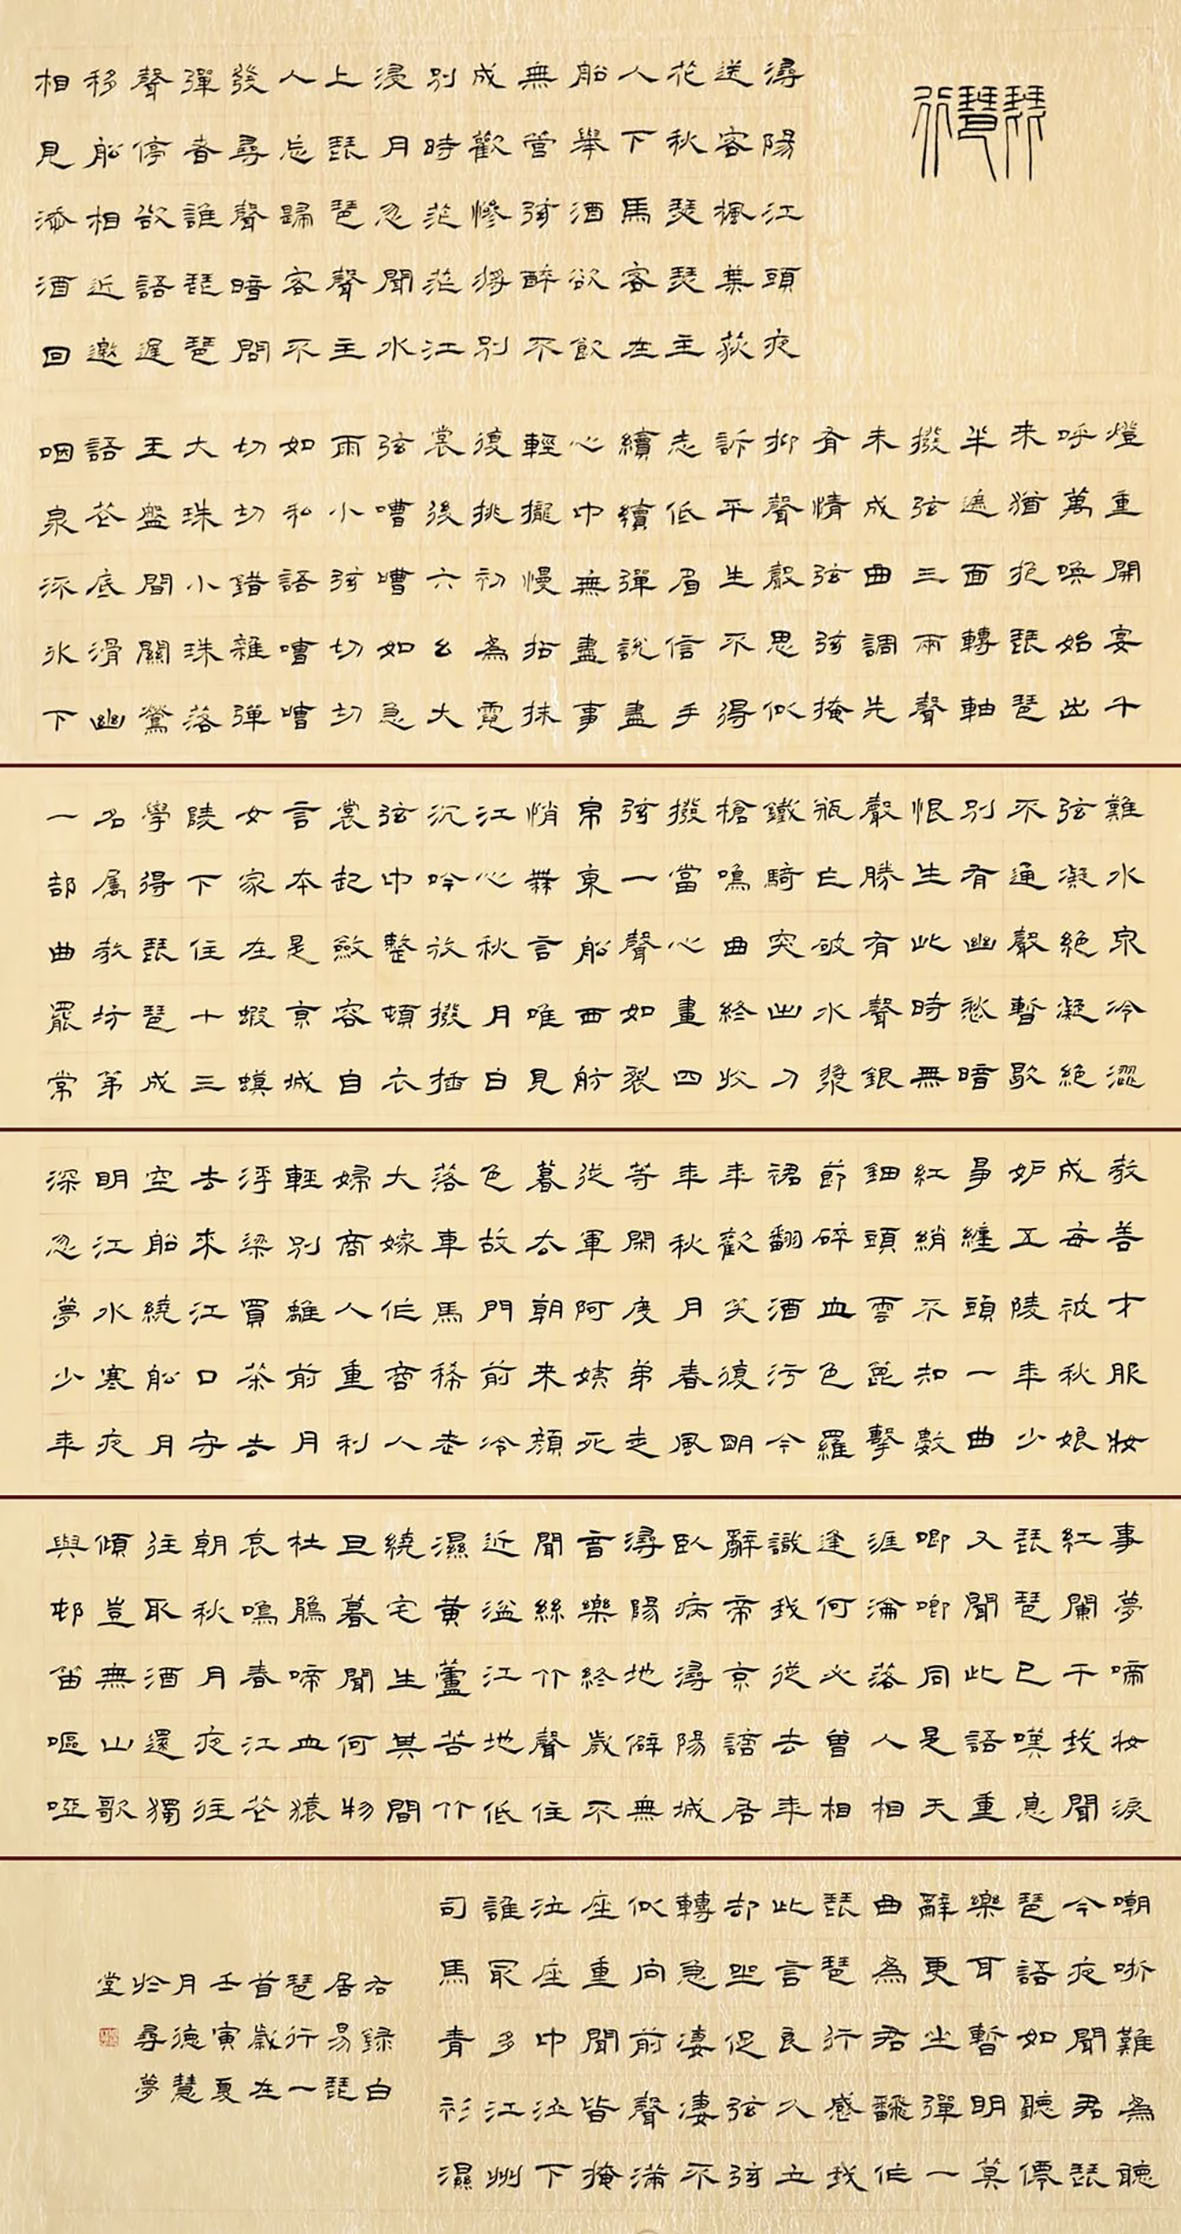 琵琶行
潯陽江頭夜
送客楓葉荻
花秋瑟瑟主
人下馬客在
船舉酒欲飲
無管弦醉不
成歡慘將別
別時茫茫江
浸月忽聞水
上琵琶聲主
人忘歸客不
發尋聲暗問
彈者誰琵琶
聲停欲語遲
移船相近邀
相見添酒回
燈重開宴千
呼萬喚始出
来猶抱琵琶
半遮面轉軸
撥弦三兩聲
未成曲調先
有情弦弦掩
抑聲聲思似
訴平生不得
志低眉信手
續續彈說盡
心中無盡事
輕攏慢拈抹
復挑初為霓
裳後六幺大
弦嘈嘈如急
雨小弦切切
如私語嘈嘈
切切錯雜彈
大珠小珠落
玉盤間關鶯
語花底滑幽
咽泉流冰下
難水泉冷澀
弦凝絕凝絕
不通聲暫歇
別有幽愁暗
恨生此時無
聲勝有聲銀
瓶乍破水漿
鐵騎突出刀
槍鳴曲終收
撥當心畫四
弦一聲如裂
帛東船西舫
悄無言唯見
江心秋月白
沉吟放撥插
弦中整頓衣
裳起斂容自
言本是京城
女家在蝦蟆
陵下住十三
學得琵琶成
名屬教坊第
一部曲罷常
教善才服妝
成每被秋娘
妒五陵年少
爭纏頭一曲
紅綃不知數
鈿頭雲篦擊
節碎血色羅
裙翻酒污今
年歡笑復明
年秋月春風
等閑度弟走
從軍阿姨死
暮去朝来顏
色故門前冷
落車馬稀老
大嫁作商人
婦商人重利
輕別離前月
浮梁買茶去
去來江口守
空船繞船月
明江水寒夜
深忽夢少年
事夢啼妝淚
紅闌干我聞
琵琶已嘆息
又聞此語重
唧唧同是天
涯淪落人相
逢何必曾相
識我從去年
辭帝京謫居
臥病潯陽城
潯陽地僻無
音樂終歲不
聞絲竹聲住
近湓江地低
濕黃蘆苦竹
繞宅生其間
旦暮聞何物
杜鵑啼血猿
哀鳴春江花
朝秋月夜往
往取酒還獨
傾豈無山歌
與邨笛嘔啞
嘲哳難為聽
今夜聞君琵
琶語如聽僊
樂耳暫明莫
辭更坐彈一
曲為君翻作
琵琶行感我
此言良久立
却坐促弦弦
轉急凄凄不
似向前聲滿
座重聞皆掩
泣座中泣下
誰最多江州
司馬青衫濕
右錄白
居易琵
琶行一
首歲在
壬寅夏
月德慧
於尋夢
堂